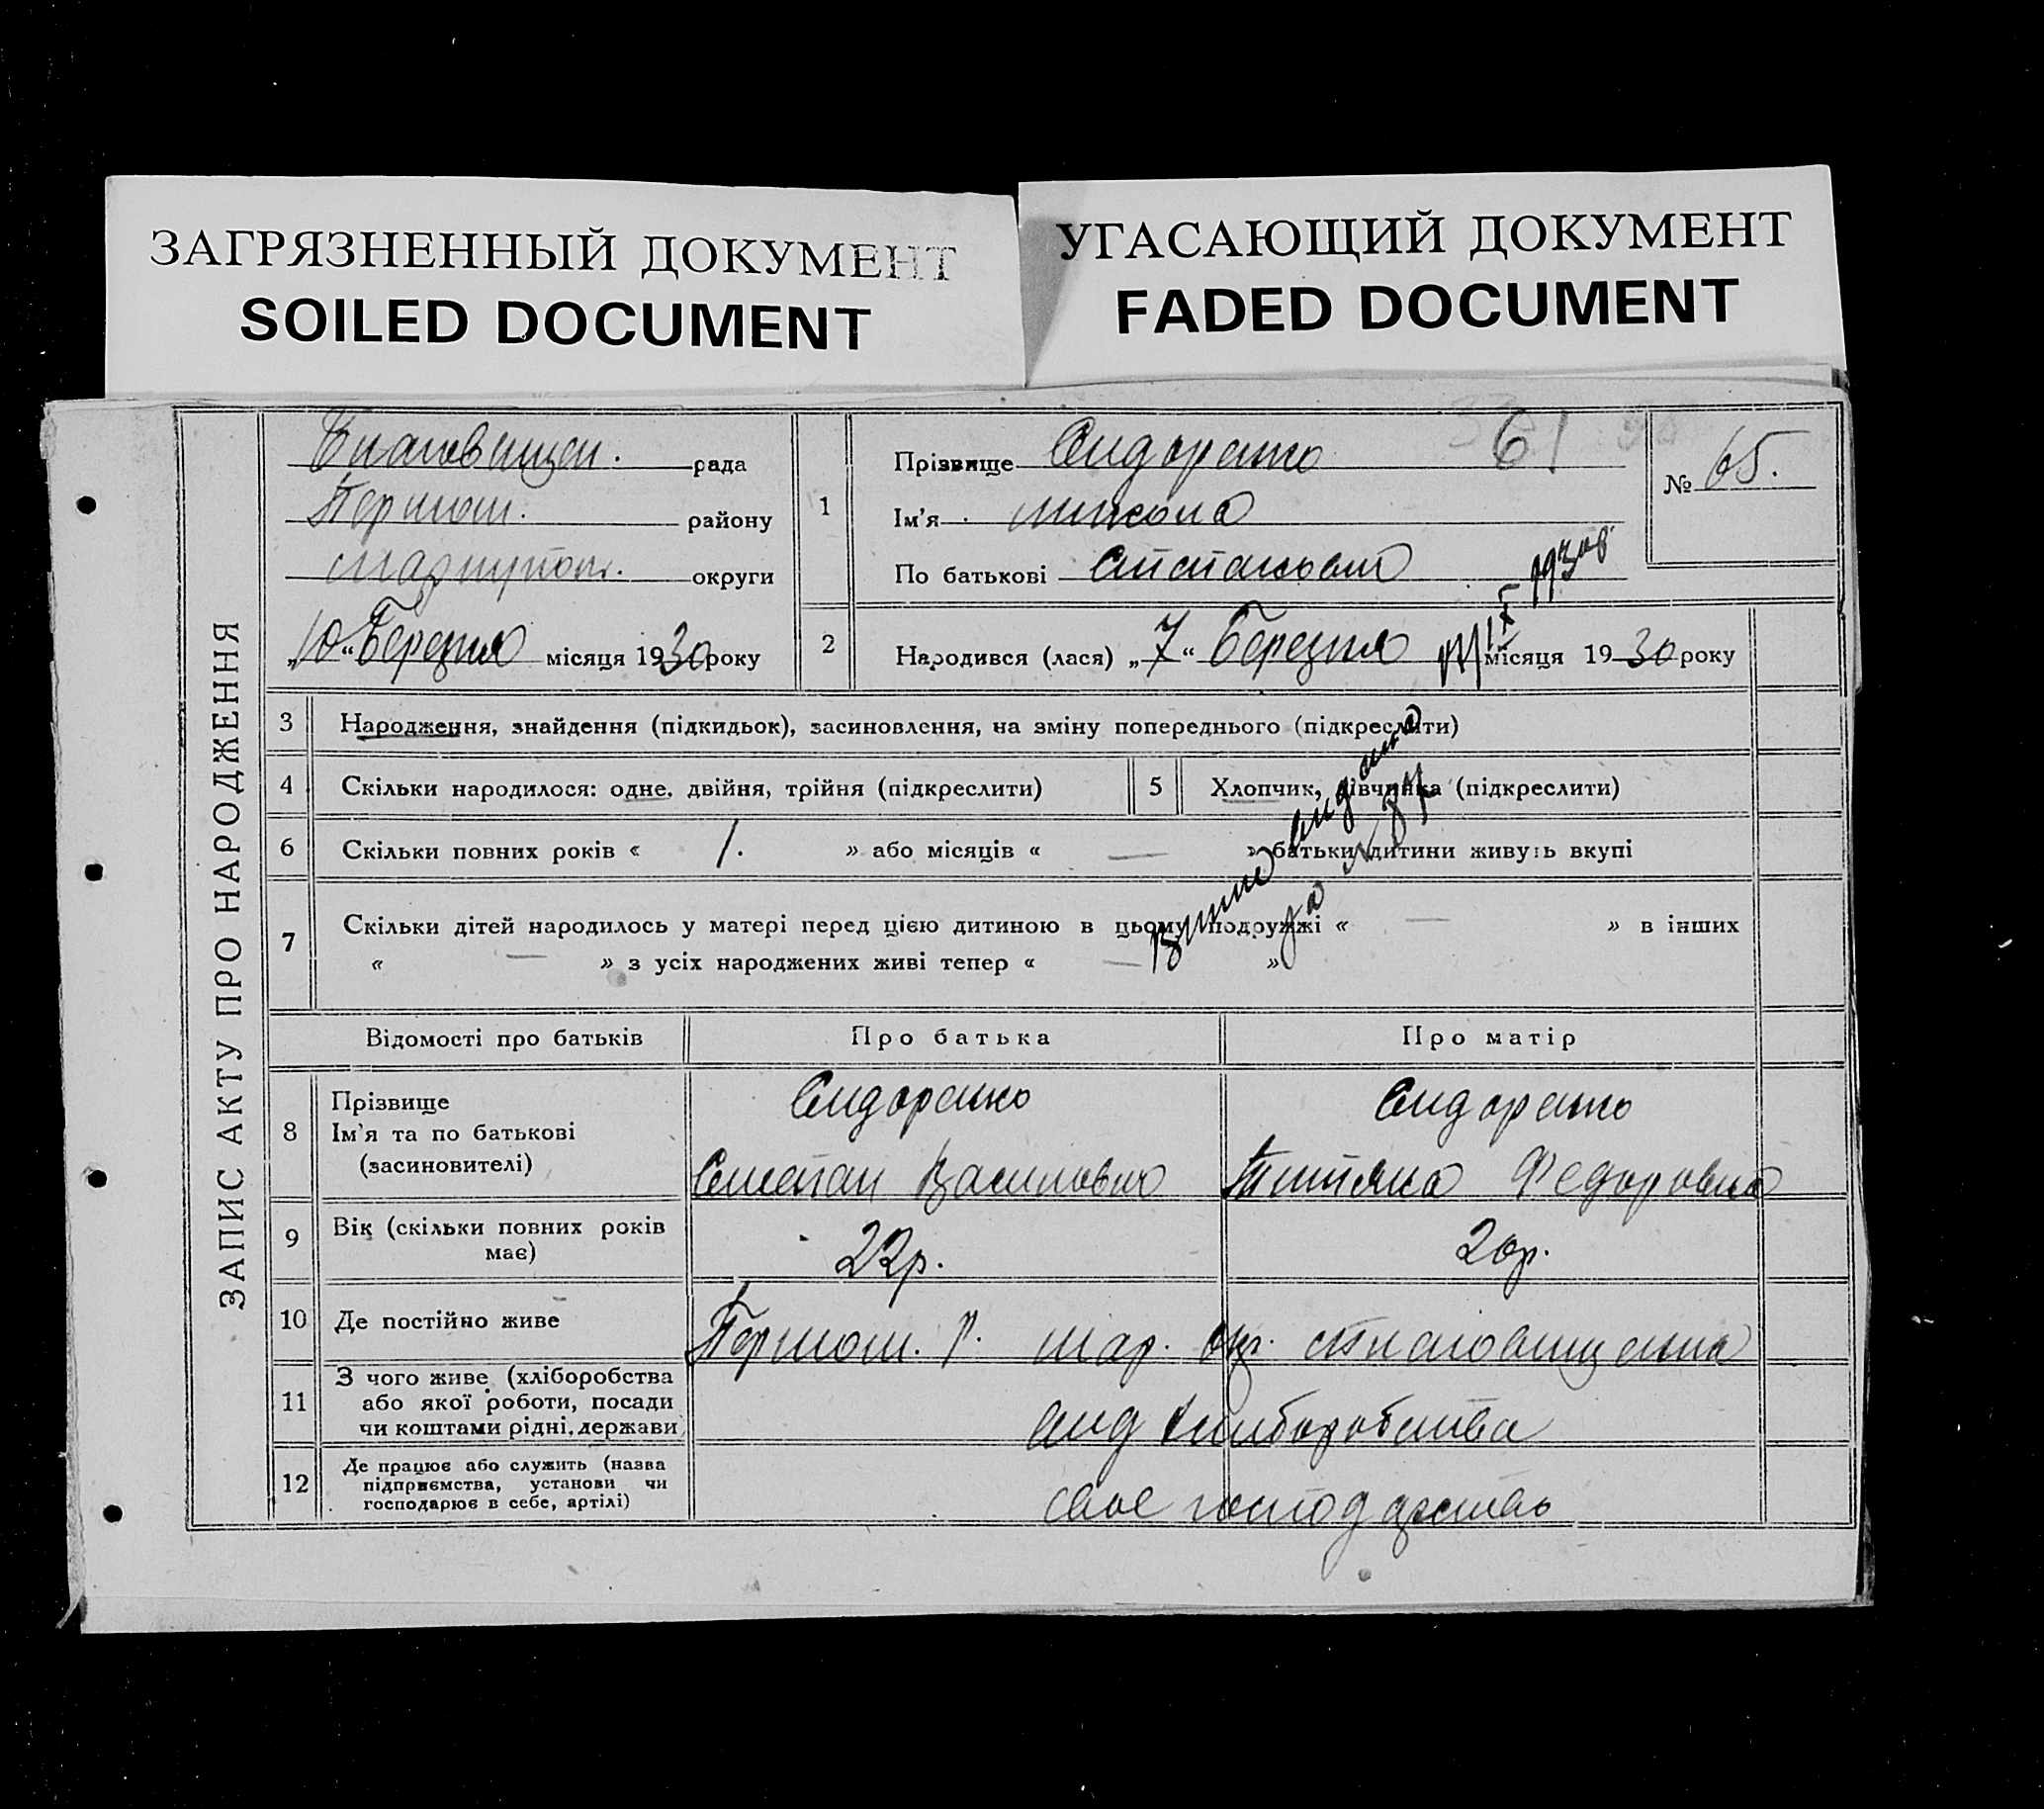 ЗАГРЯЗНЕННЫЙ ДОКУМЕНТ
SOILED DOCUMENT
УГАСАЮЩИЙ ДОКУМЕНТ
FADED DOCUMENT
ЗАПИС АКТУ ПРО НАРОДЖЕННЯ
Благовищен. рада
району
Мариупол. округи
„10“ Березня місяця 1930 року
1 Прізвище Сидоренко 61
Ім'я Микола
По батькові Степанович
№ 65.
2 Народився (лася) „7“ Березня місяця 1930 року
3 Народження, знайдення (підкидьок), засиновлення, на зміну попереднього (підкреслити)
4 Скільки народилося: одне, двійня, трійня (підкреслити)
5 Хлопчик, дівчинка (підкреслити)
6 Скільки повних років « 1. » або місяців « — » батьки дитини живуть вкупі
7 Скільки дітей народилось у матері перед цією дитиною в цьому подружжі « — » в інших
« — » з усіх народжених живі тепер « — »
за № 37
1930р
Відомості про батьків Про батька Про матір
8 Прізвище Сидоренко Сидоренко
Ім'я та по батькові
(засиновителі) Степан Василович Титяна Федоровна
9 Вік (скільки повних років
має) 22р. 20р.
10 Де постійно живе р. Мар. окр.
11 З чого живе (хліборобства
або якої роботи, посади
чи коштами рідні, держави
хліборобства
12 Де працює або служить (назва
підприємства, установи чи
господарює в себе, артілі)
свое господарство